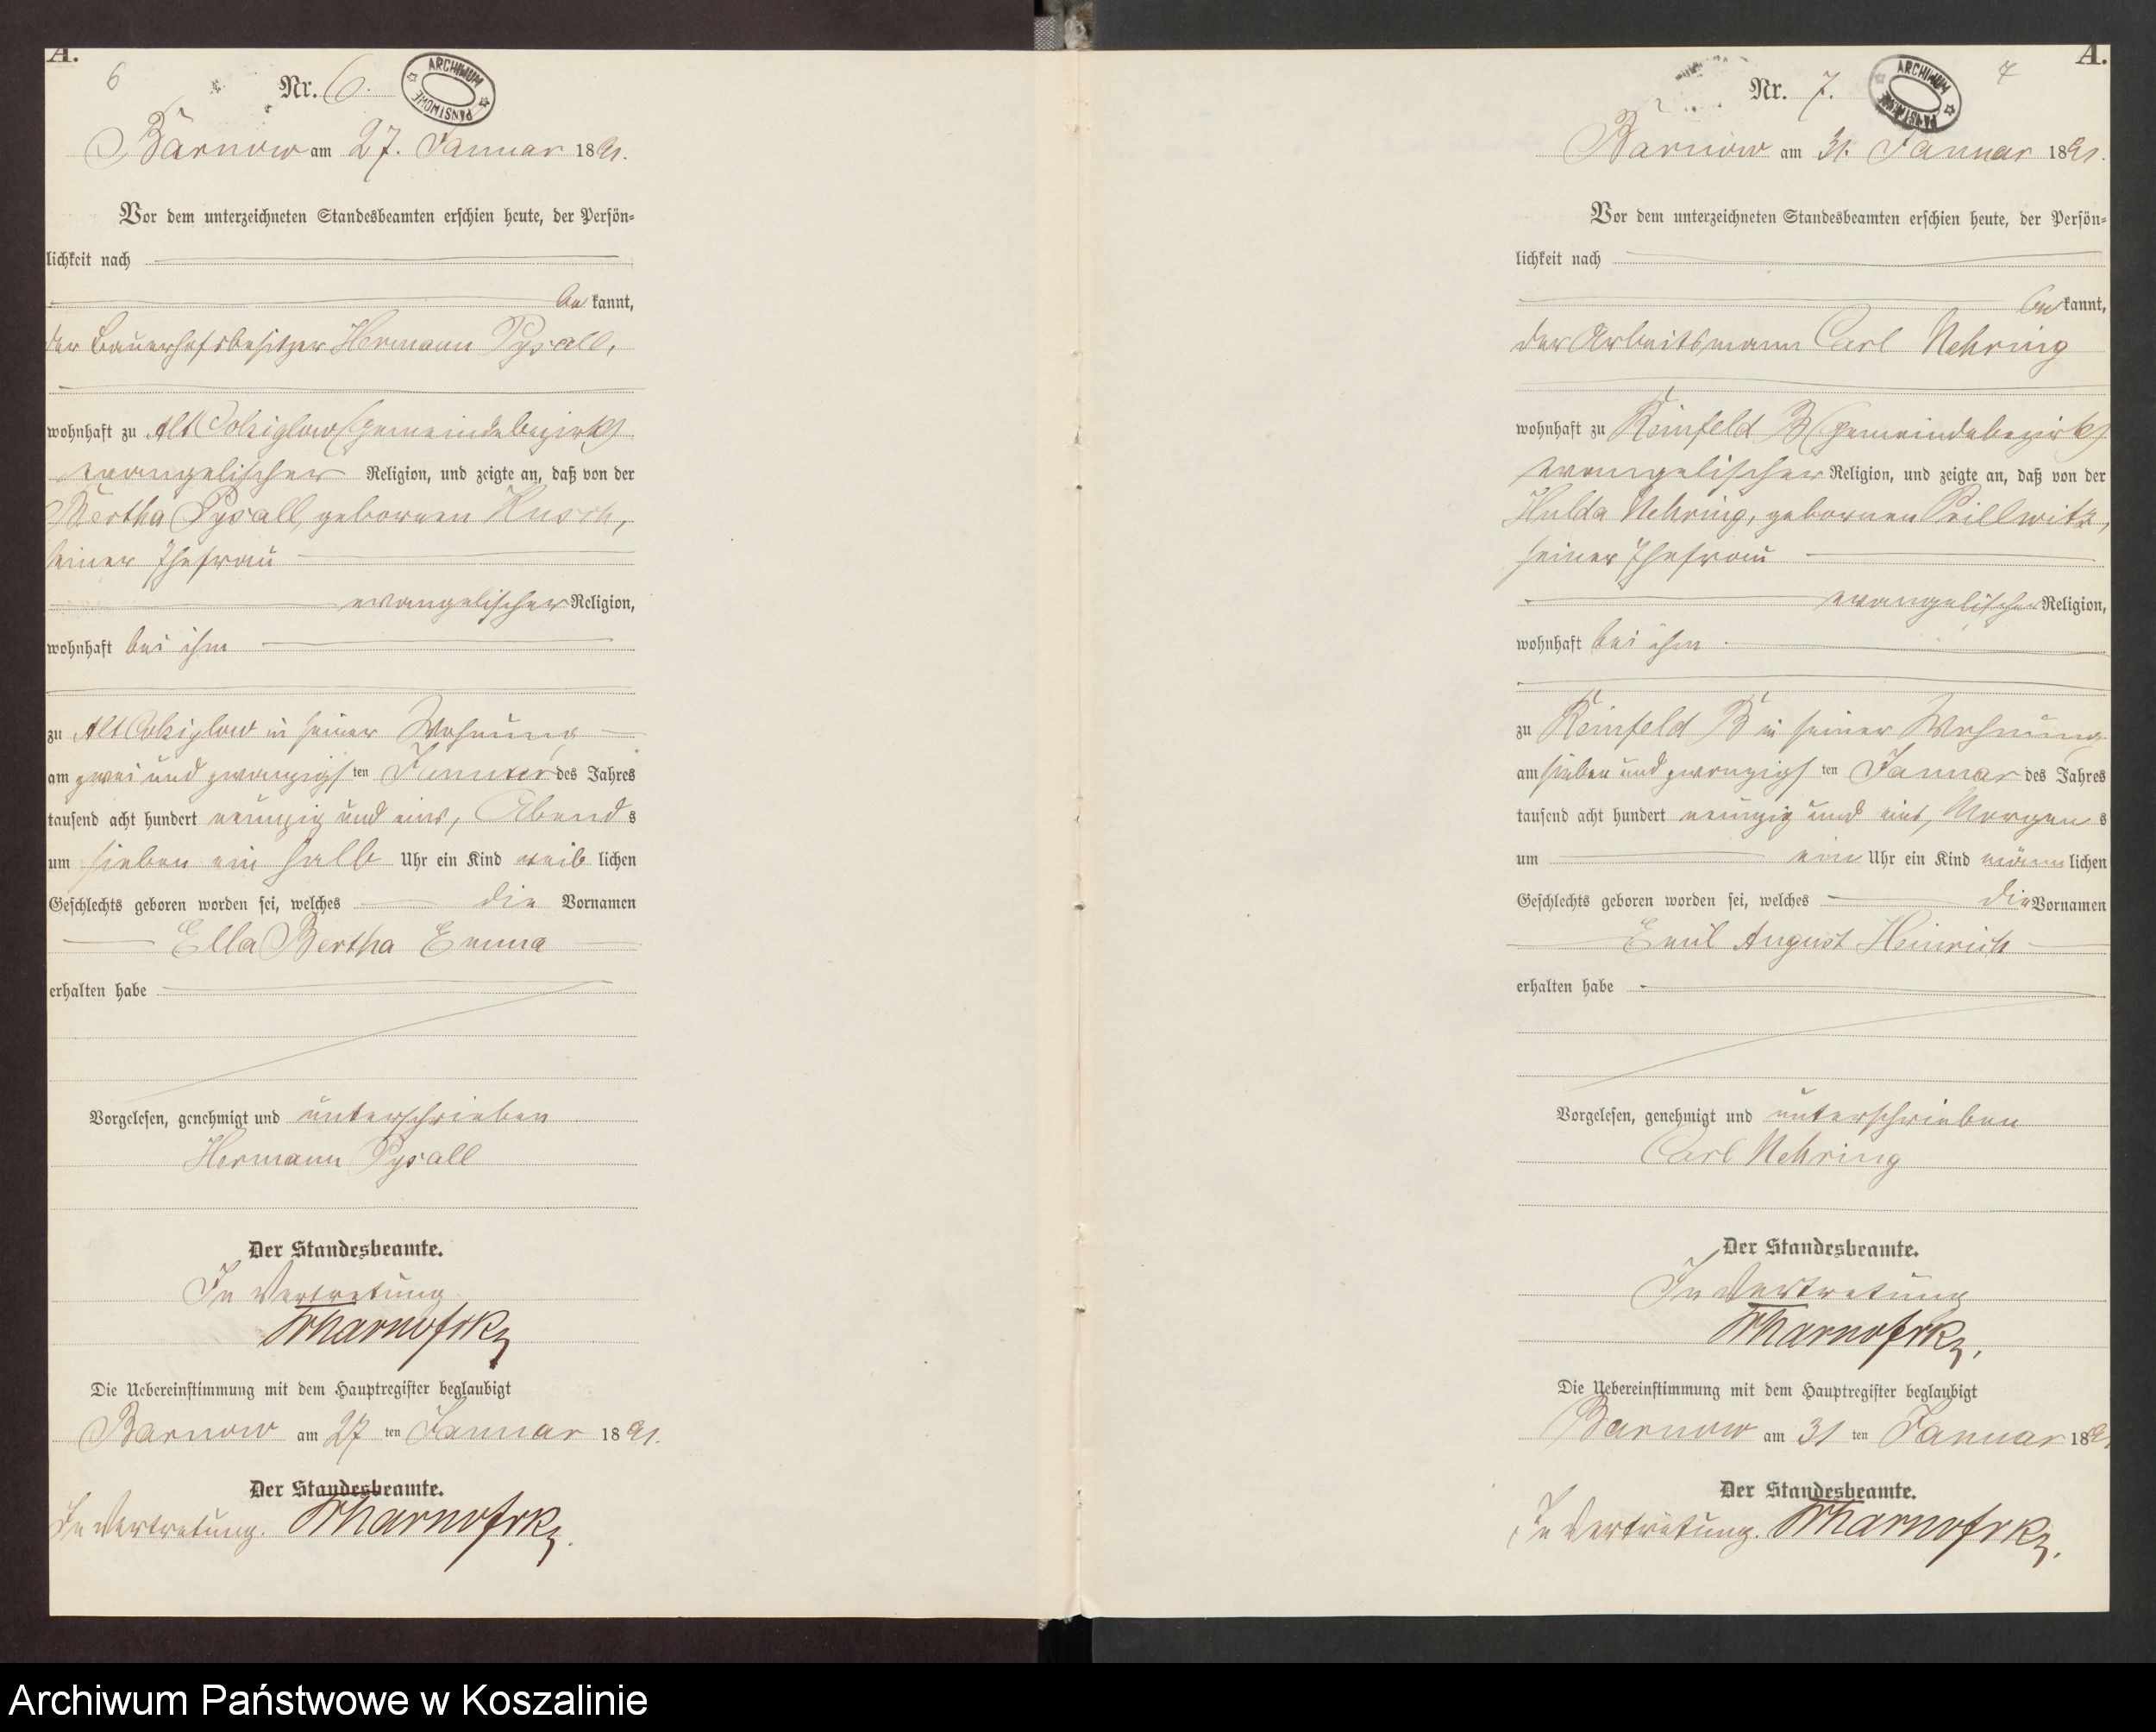 A.
6
Nr. 6.
ARCHIWUM PAŃSTWOWE
Barnow am 27. Januar 1891.
Vor dem unterzeichneten Standesbeamten erschien heute, der Persön-
lichkeit nach
be kannt,
der Bauerhofsbesitzer Hermann Pysall,
wohnhaft zu Alt Kolziglow (Gemeindebezirk)
evangelischer Religion, und zeigte an, daß von der
Bertha Pysall, geborenen Kusch,
seiner Ehefrau
evangelischer Religion,
wohnhaft bei ihm
zu Alt Kolziglow in seiner Wohnung
am zwei und zwanzigs ten Januar des Jahres
tausend acht hundert neunzig und eins, Abend s
um sieben ein halb Uhr ein Kind weib lichen
Geschlechts geboren worden sei, welches die Vornamen
Ella Bertha Emma
erhalten habe
Vorgelesen, genehmigt und unterschrieben
Hermann Pysall
Der Standesbeamte.
In Vertretung
Die Uebereinstimmung mit dem Hauptregister beglaubigt
Barnow am 27 ten Januar 18 91.
Der Standesbeamte.
In Vertretung.
A.
7
Nr. 7.
ARCHIWUM PAŃSTWOWE
Barnow am 31. Januar 1891.
Vor dem unterzeichneten Standesbeamten erschien heute, der Persön-
lichkeit nach
be kannt,
der Arbeitsmann Carl Nehring
wohnhaft zu Reinfeld B (Gemeindebezirk)
evangelischer Religion, und zeigte an, daß von der
Hulda Nehring, geborenen Prillwitz,
seiner Ehefrau
evangelischer Religion,
wohnhaft bei ihm
zu Reinfeld B in seiner Wohnung
am sieben und zwanzigs ten Januar des Jahres
tausend acht hundert neunzig und eins, Morgen s
um ein Uhr ein Kind männ lichen
Geschlechts geboren worden sei, welches die Vornamen
Emil August Heinrich
erhalten habe
Vorgelesen, genehmigt und unterschrieben
Carl Nehring
Der Standesbeamte.
In Vertretung
Die Uebereinstimmung mit dem Hauptregister beglaubigt
Barnow am 31 ten Januar 1891
Der Standesbeamte.
In Vertretung.
Archiwum Państwowe w Koszalinie